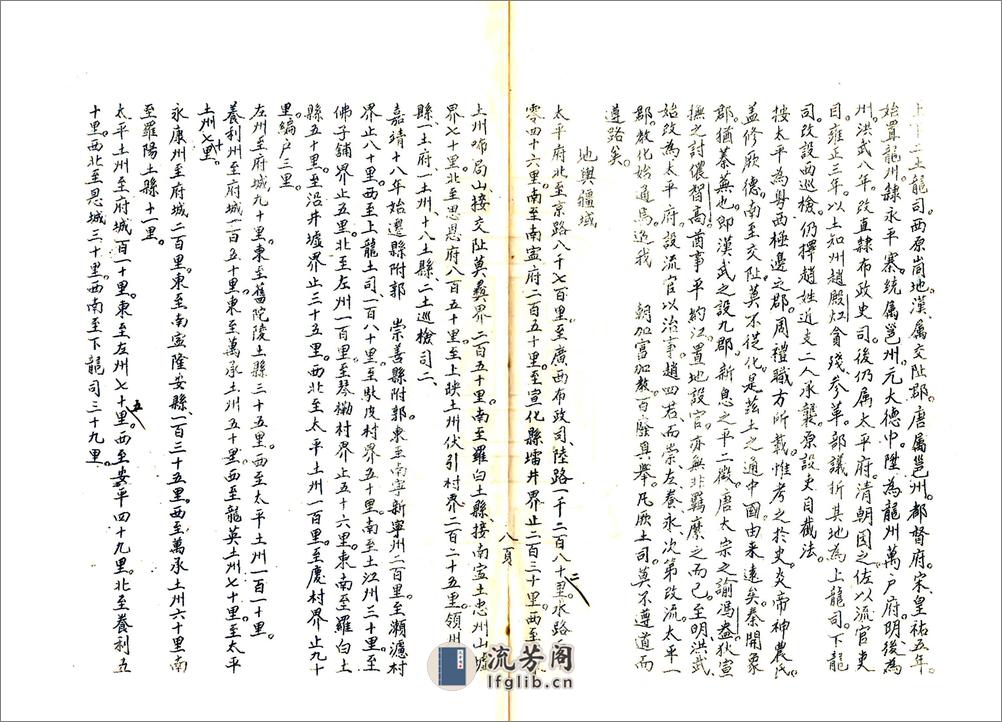 上下二土龍司西原峝地。漢屬交趾郡。唐屬邕州。都督府。宋皇祐五年。
始置龍州。隸永平寨。統屬邕州。元大德中陞為龍州萬戶府。明後為
州。洪武八年。改直隸布政史司。後仍属太平府。清朝因之。佐以流官吏
目。雍正三年。以土知州趙殿灴貪殘參革。部議折其地為上龍司。下龍
司。改設西巡檢。仍擇趙姓近支二人承襲。原設吏目裁法。
按太平為粵西極邊之郡。周禮職方所載。惟考之於史。炎帝神農氏
盖修厥德。南至交趾。莫不從化。是茲土之通中國由来遠矣。秦開象
郡。猶蓁蕪也。即漢武之設九郡。新息之平二徵。唐太宗之諭馮盎。狄宣
撫之討儂智高。酋事平約江置地設官。亦無非羈縻之而已。至明洪武
始改為太平府。設流官以治事。趙四若。而崇左養永。次第改流。太平一
郡。教化始通焉。迨我 朝加富加教。百廢具舉。凡厥土司。莫不遵道而
遵路矣。
地輿疆域
太平府北至京路八千七百里。至廣西布政司。陸路一千二百八十里。水路二
零四十六里。南至南寧府二百五十里。至宣化縣壜井界止二百三十里。西至
土州咘局山。接交阯莫彝界二百五十里。南至羅白土縣。接南寧土忠州山墟
界七十里。北至思恩府八百五十里。至上映土州伏引村界二百二十五里。領州
縣一土府一土州十八土縣二土巡檢司二、
嘉靖十八年始遷縣附郭 崇善縣附郭。東至南寧新寧州二百里。至瀨滤村
界止八十里。西至上龍土司一百八十里。至馱皮村界五十里。南至土江州三十里。至
佛子舖界止五里。北至左州一百里。至琴椾村界止五十六里。東南至羅白土
縣五十里。至沿井墟界止三十五里。西北至太平土州一百里。至慶村界止九十
里。編户三里。
左州至府城九十里。東至舊陀陵土縣三十五里。西至太平土州一百一十里。
養利州至府城一百五十里。東至萬承土州五十里。西至龍英土州七十里。至太平
土州七十里。
永康州至府城二百里。東至南寧隆安縣一百三十五里。西至萬承土州六十里。南
至羅陽土縣十一里。
太平土州至府城百一十里。東至左州七十五里。西至安平四十九里。北至養利五
十里。西北至恩城三十里。西南至下龍司三十九里。
八頁
流芳阁
lfglib.cn